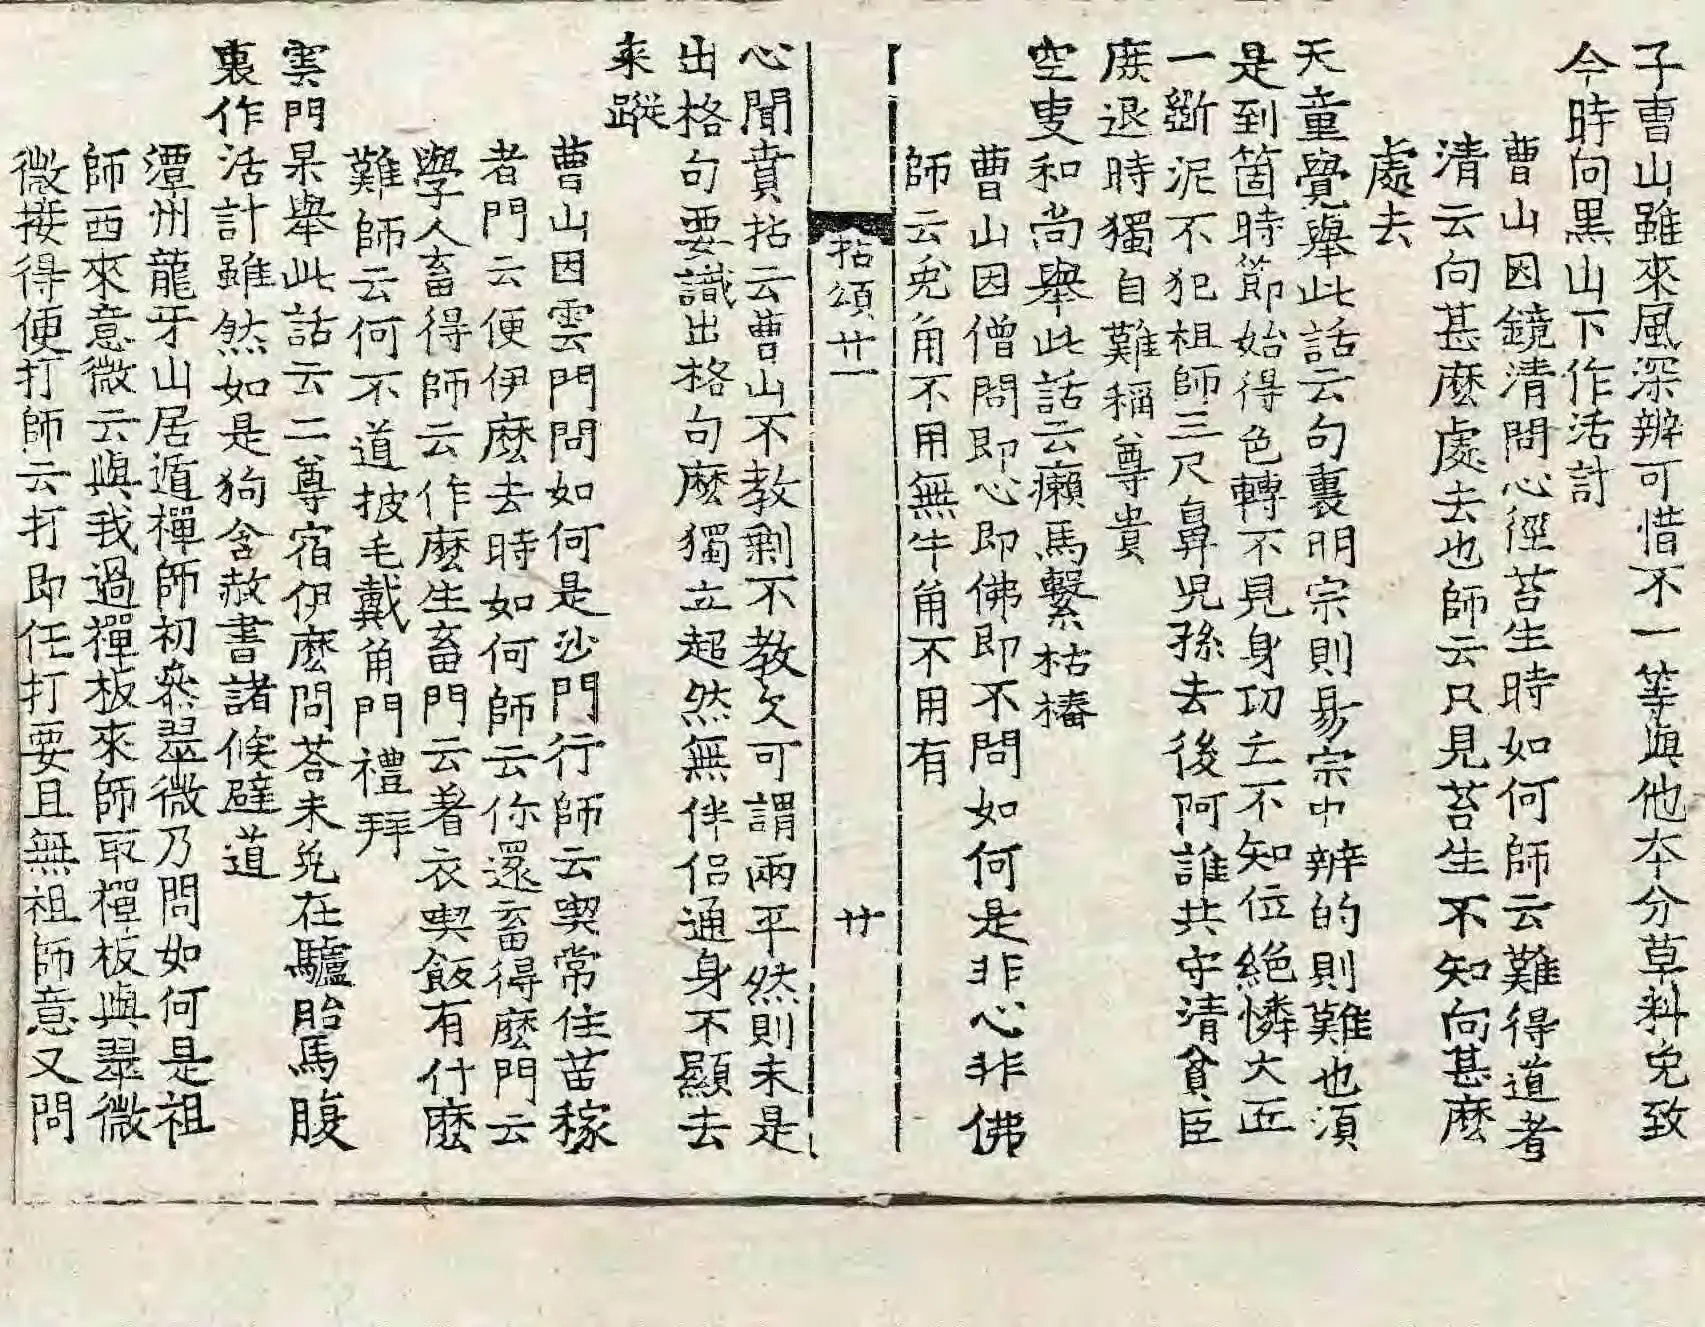 子曹山雖來風深辨可惜不一等與他本分草料免致
今時向黑山下作活計
曹山因鏡清問心徑苔生時如何師云難得道者
清云向甚麽處去也師云只見苔生不知向甚麽
處去
天童覺舉此話云句裏明宗則易宗中辨的則難也須
是到箇時節始得色轉不見身功亡不知位絕憐大丘
一斷泥不犯祖師三尺鼻児孫去後阿誰共守清貧臣
庻退時獨自難稱尊貴
空叟和尚舉此話云癩馬繫枯樁
曹山因僧問即心即佛即不問如何是非心非佛
師云兎角不用無牛角不用有
拈頌廿一
廿
心聞賁拈云曹山不教剩不教欠可謂兩平然則未是
出格句要識出格句麽獨立超然無伴侣通身不顯去
来蹤
曹山因雲門問如何是沙門行師云喫常住苗稼
者門云便伊麽去時如何師云你還畜得麽門云
學人畜得師云作麽生畜門云著衣喫飯有什麽
難師云何不道披毛戴角門禮拜
雲門杲舉此話云二尊宿伊麽問荅未免在驢胎馬腹
裏作活計雖然如是狗含赦書諸候避道
潭州龍牙山居遁禪師初叅翠微乃問如何是祖
師西來意微云與我過禪板來師取禪板與翠微
微接得便打師云打即任打要且無祖師意又問